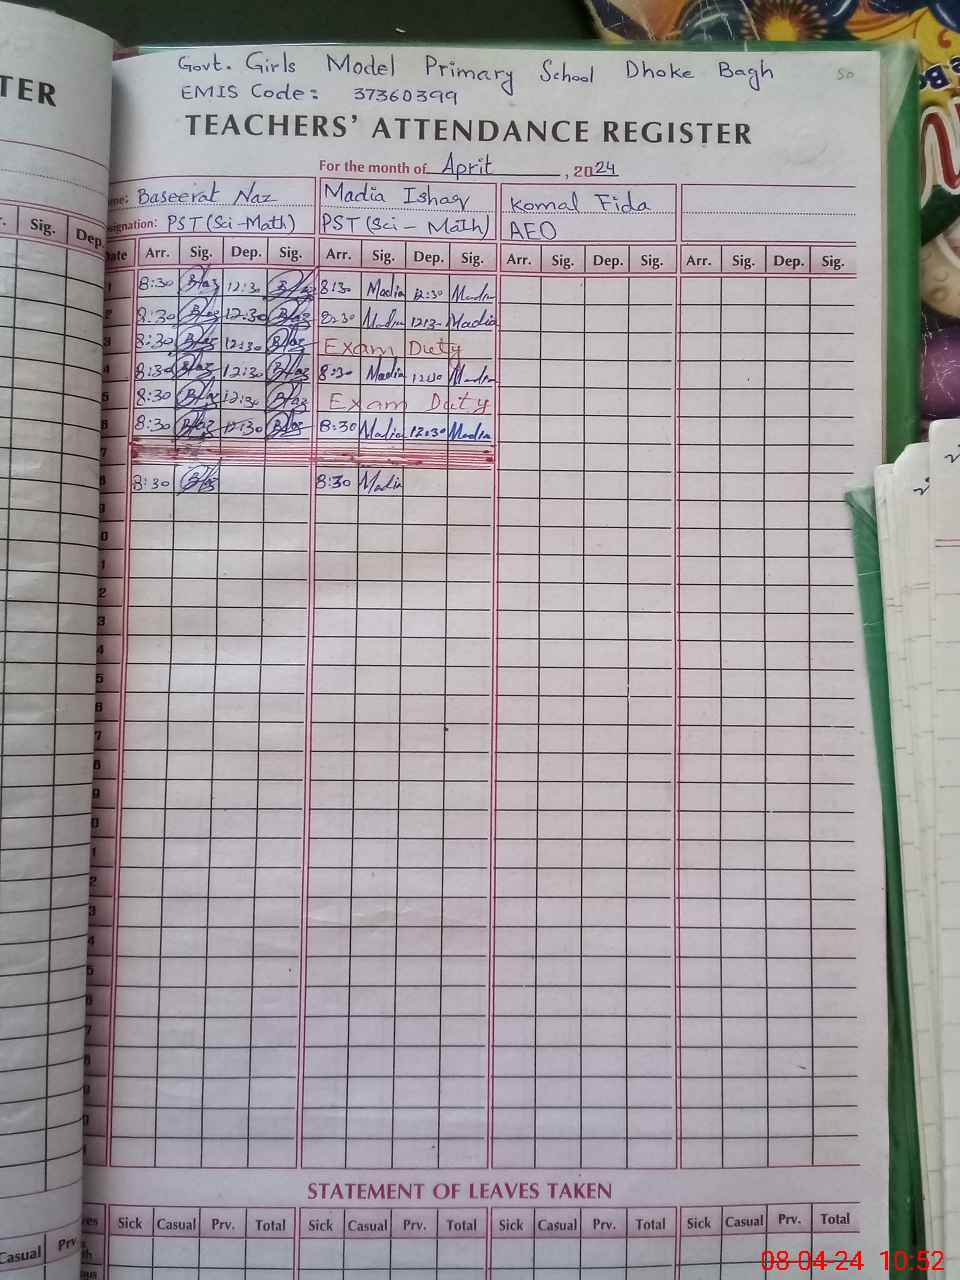 TER
Govt. Girls Model Primary School Dhoke Bagh
50
EMIS Code: 37360399
TEACHERS' ATTENDANCE REGISTER
For the month of April, 2024
Baseerat Naz Madia Ishaq Komal Fida
signation: PST (Sci-Math) PST (Sci-Math) AEO
Sig. Dep.
Date Arr. Sig. Dep. Sig. Arr. Sig. Dep. Sig. Arr. Sig. Dep. Sig. Arr. Sig. Dep. Sig.
8:30 B/az 12:30 B/az 8:30 Madia 12:30 Madia
8:30 B/az 12:30 B/az 8:30 Madia 12:3- Madia
3 8:30 B/az 12:30 B/az Exam Duty
8:30 B/az 12:30 B/az 8:30 Madia 12:30 Madia
8:30 B/az 12:30 B/az Exam Duty
8:30 B/az 12:30 B/az 8:30 Madia 12:30 Madia
7
8:30 B/az 8:30 Madia
9
0
1
2
3
4
5
6
7
8
9
0
1
2
3
4
5
6
7
8
9
0
STATEMENT OF LEAVES TAKEN
Sick Casual Prv. Total Sick Casual Prv. Total Sick Casual Prv. Total Sick Casual Prv. Total
Casual Prv.
08-04-24 10:52